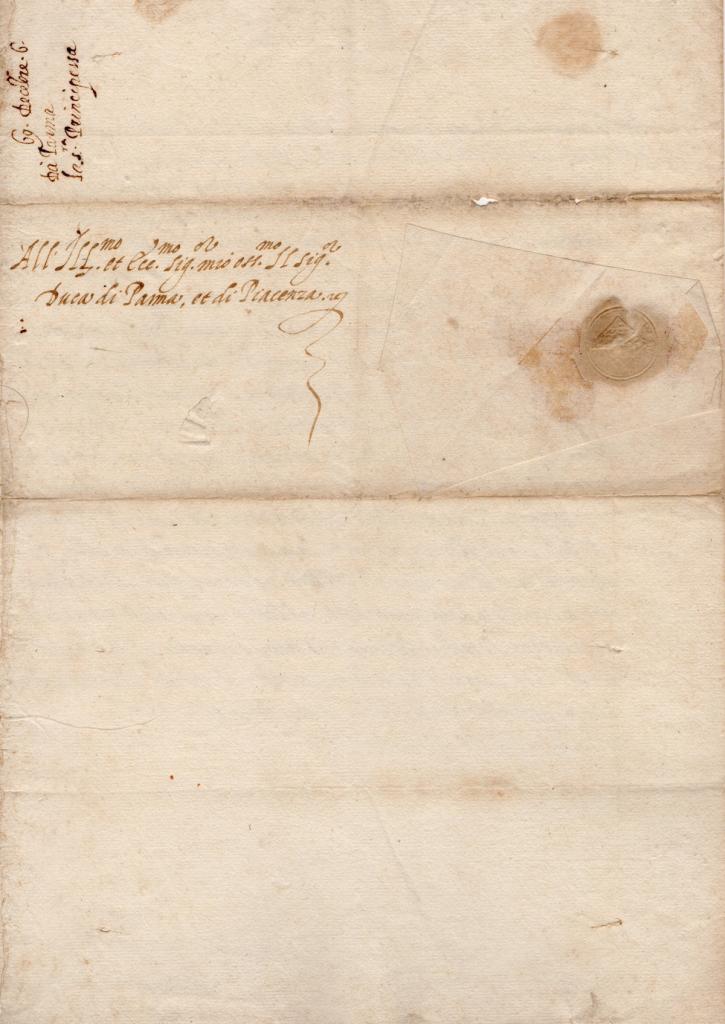 69. Decēbre. 6.
Da Parma
La s.ra Principessa
All' Ill.mo et Ecc.mo sig.or mio oss.mo Il sig.or
Duca di Parma, et di Piacenza. &c